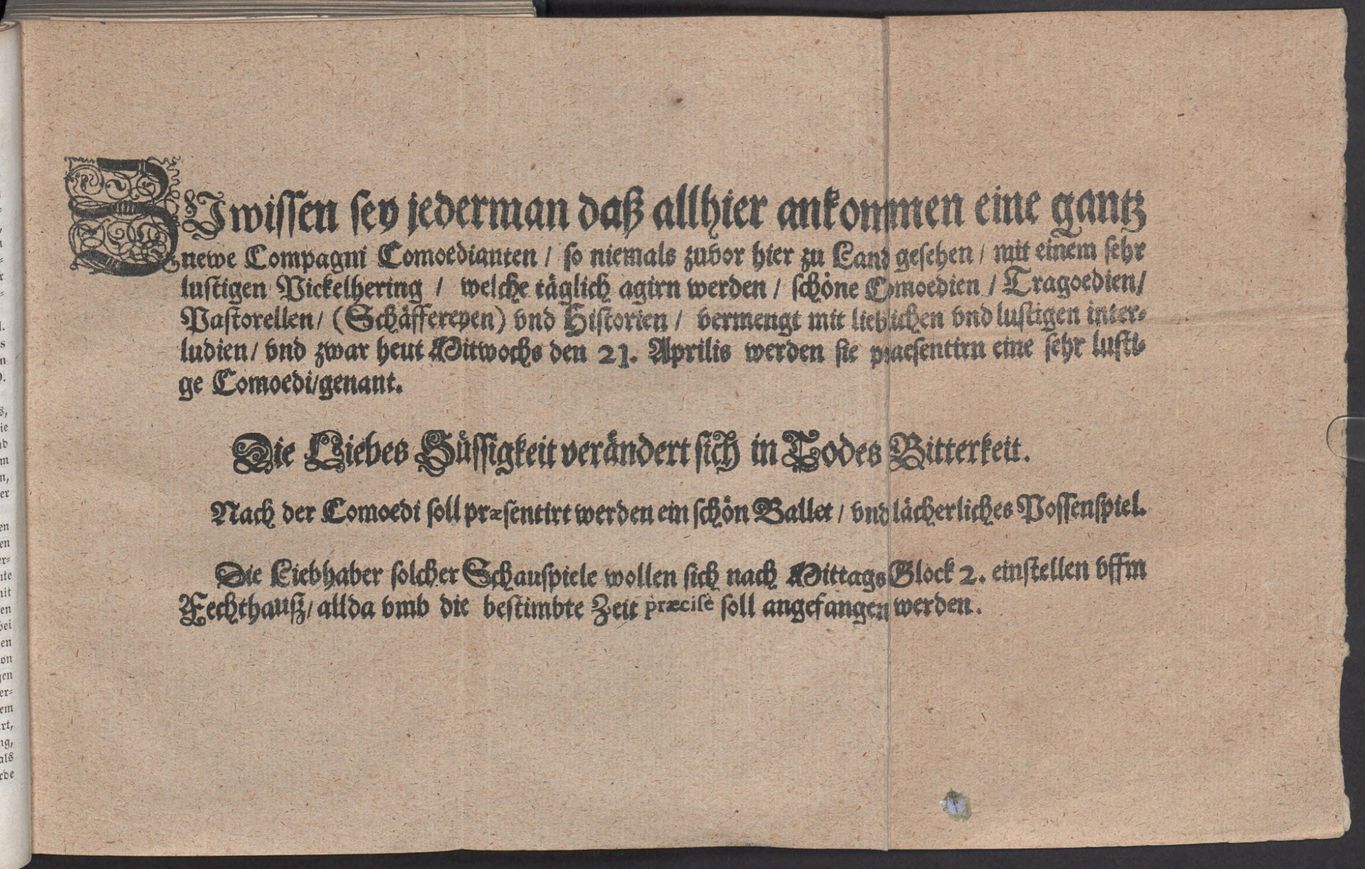 ZU wissen sey jederman daß allhier ankommen eine gantz
newe Compagni Comoedianten / so niemals zuvor hier zu Land gesehen / mit einem sehr
lustigen Pickelhering / welche täglich agirn werden / schöne Comoedien / Tragoedien/
Pastorellen/ (Schäffereyen) vnd Historien / vermengt mit lieblichen vnd lustigen inter-
ludien/ vnd zwar heut Mitwochs den 21. Aprilis werden sie praesentirn eine sehr lusti-
ge Comoedi/genant.
Die Liebes Süssigkeit verändert sich in Todes Bitterkeit.
Nach der Comoedi soll præsentirt werden ein schön Ballet / vnd lächerliches Possenspiel.
Die Liebhaber solcher Schauspiele wollen sich nach Mittags Glock 2. einstellen vffm
Fechthauß/ allda vmb die bestimbte Zeit præcise soll angefangen werden.